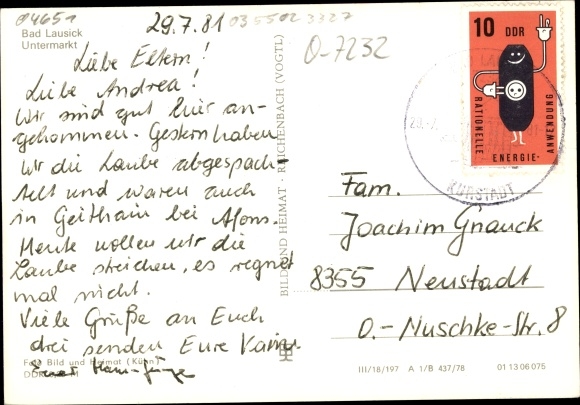 04651
Bad Lausick
Untermarkt
29.7.81
0355023327
O-7232
Liebe Eltern!
Liebe Andrea!
Wir sind gut hier an-
gekommen. Gestern haben
wir die Laube abgespach-
telt und waren auch
in Geithain bei Alfons.
Heute wollen wir die
Laube streichen, es regnet
mal nicht.
Viele Grüße an Euch
drei senden Eure Karin
Hans-Jürgen
Foto Bild und Heimat (Kühn)
BILD UND HEIMAT · REICHENBACH (VOGTL)
10 DDR
RATIONELLE
ENERGIE-
ANWENDUNG
KURSTADT
Fam.
Joachim Gnauck
8355 Neustadt
O.-Nuschke-Str. 8
III/18/197 A 1/B 437/78 01 13 06 075